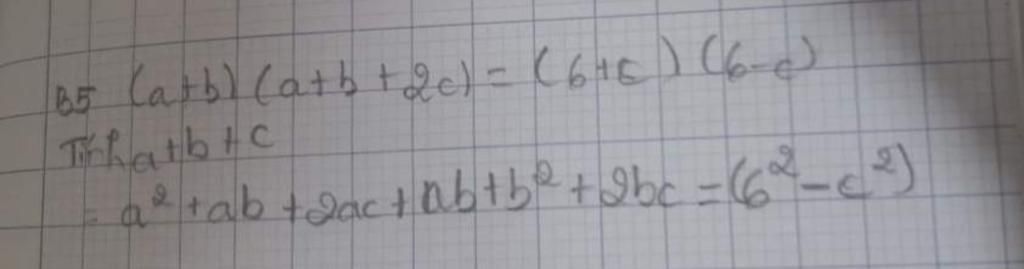 B5 (a+b) (a+b+2c) = (6+c) (6-c)
Tính a+b+c
= a² + ab + 2ac + ab + b² + 2bc = (6² - c²)